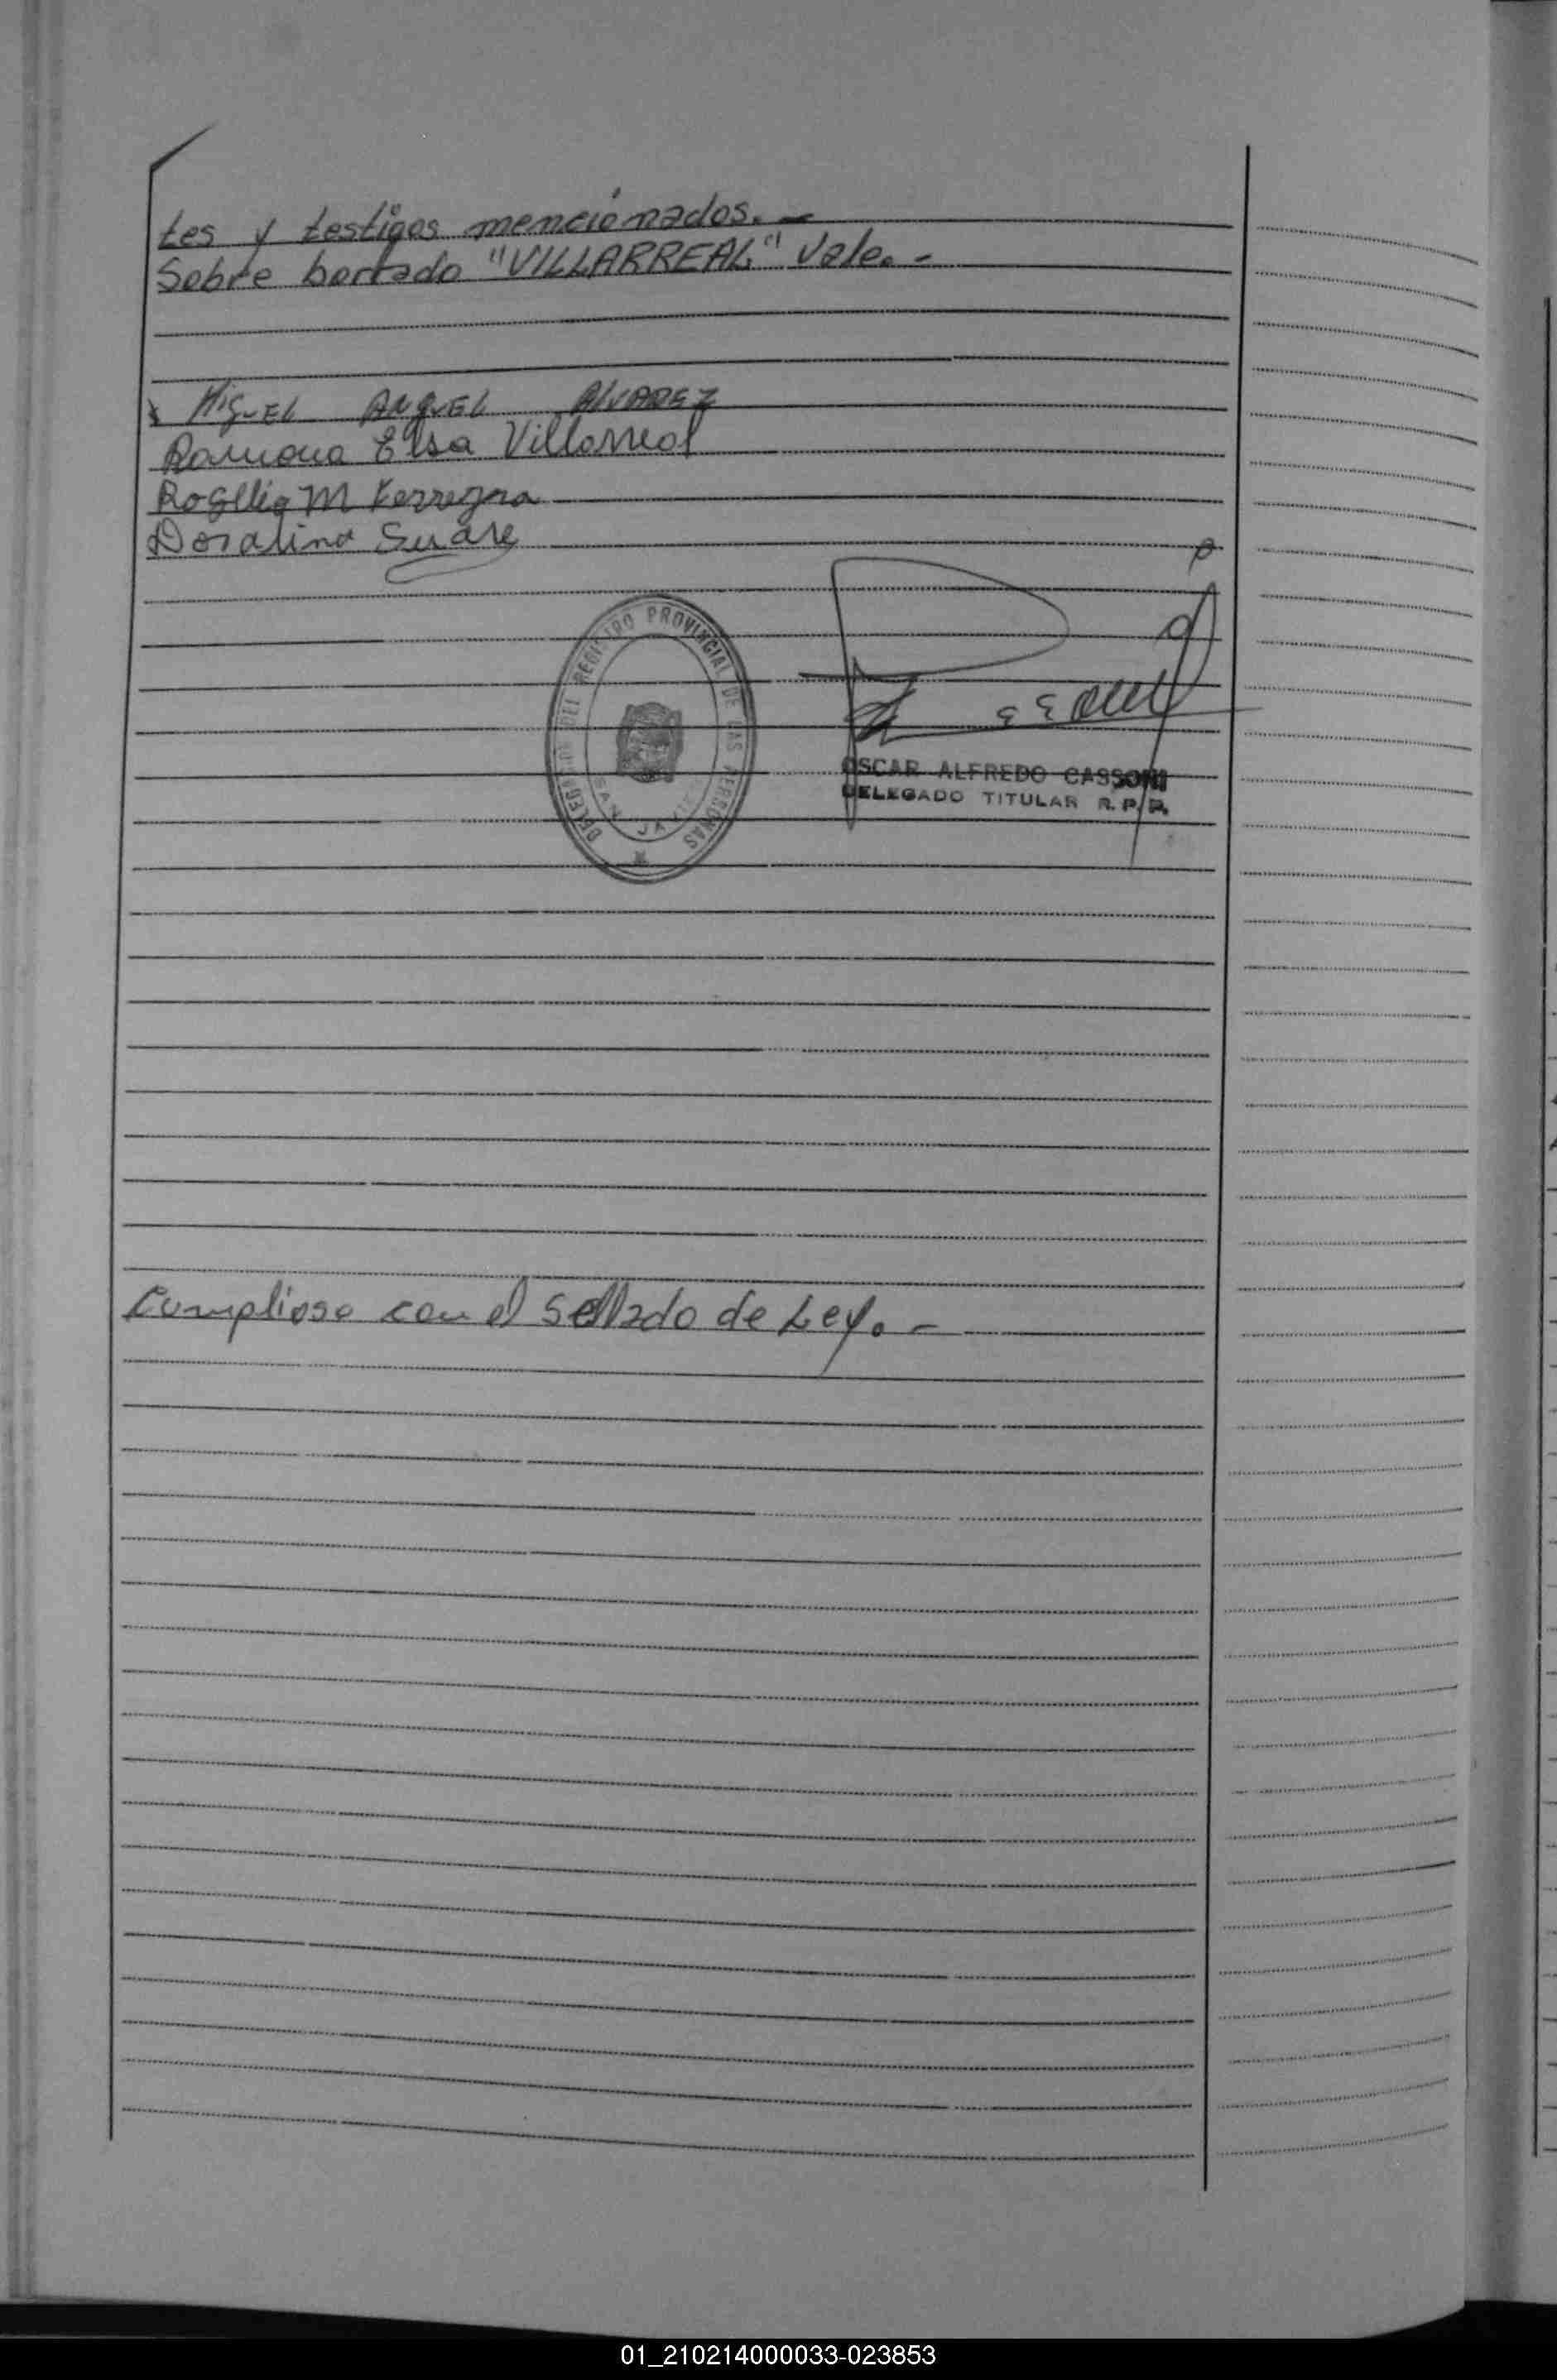 tes y testigos mencionados. -
Sobre borrado "VILLARREAL" Vale. -
MiguEL ANguEL ALVAREZ
Ramona Elsa Villarreal
M Ferreyra
Doralina Suare
DELEGADO DEL REGISTRO PROVINCIAL DE LAS PERSONAS
SAN JAVIER
OSCAR ALFREDO CASSONI
DELEGADO TITULAR R. P. P.
Cumpliose con el sellado de Ley. -
01_210214000033-023853